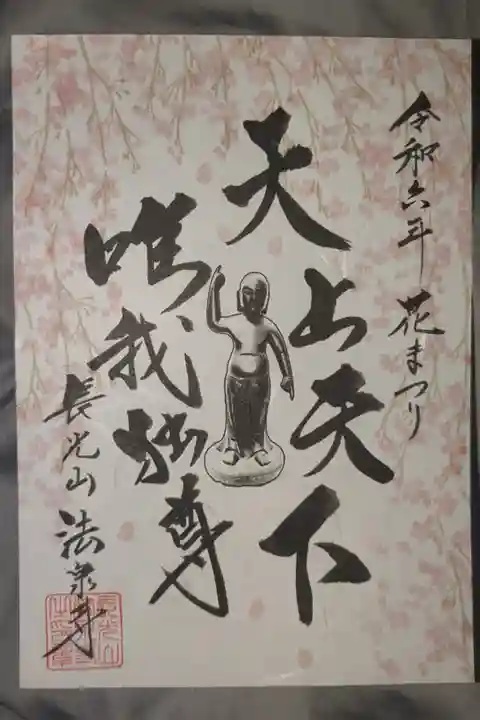 令和六年 花まつり
天上天下
唯我独尊
長光山 法泉寺